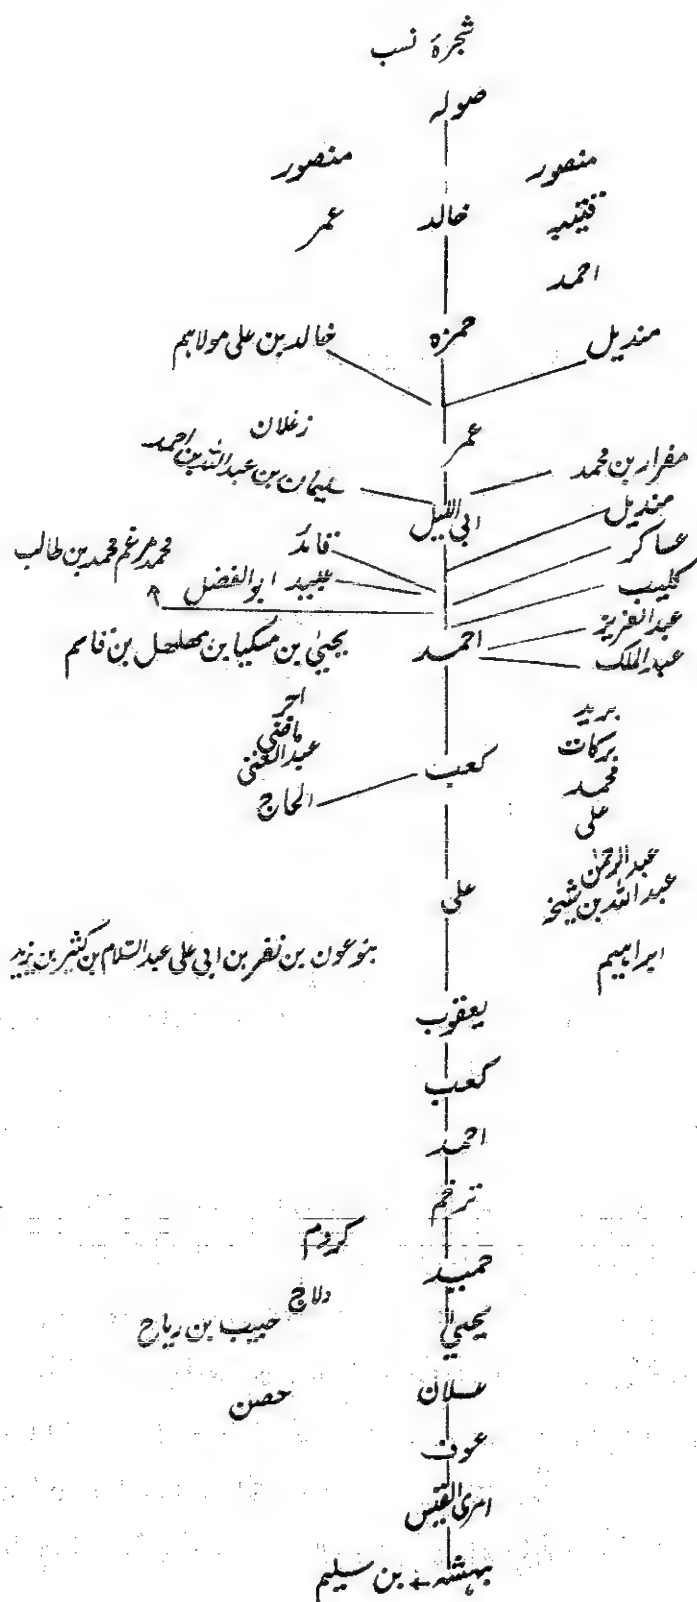 شجرۂ نسب
صولہ
منصور منصور
قتیبہ خالد عمر
احمد
مندیل حمزہ خالد بن علی مولاہم
عمر زغلان
مفرار بن محمد سلیمان بن عبداللہ بن احمد
مندیل ابی اللیل
عساکر قائد محمد مرغم محمد بن طالب
کلیب عبید ابوالفضل
عبدالعزیز
عبدالملک احمد یحییٰ بن مسکیا بن مھلہل بن قاسم
برید احمر
برکات کعب ماضی
محمد عبدالغنی
علی الحاج
عبدالرحمٰن
عبداللہ بن شیخہ علی
ابراہیم بنو عون بن نفر بن ابی علی عبدالسلام بن کثیر بن یزید
یعقوب
کعب
احمد
ترخم
کردم
حمید
دلاج
یحییٰ حبیب بن ریاح
علان حصن
عوف
امری القیس
بہشہ بن سلیم